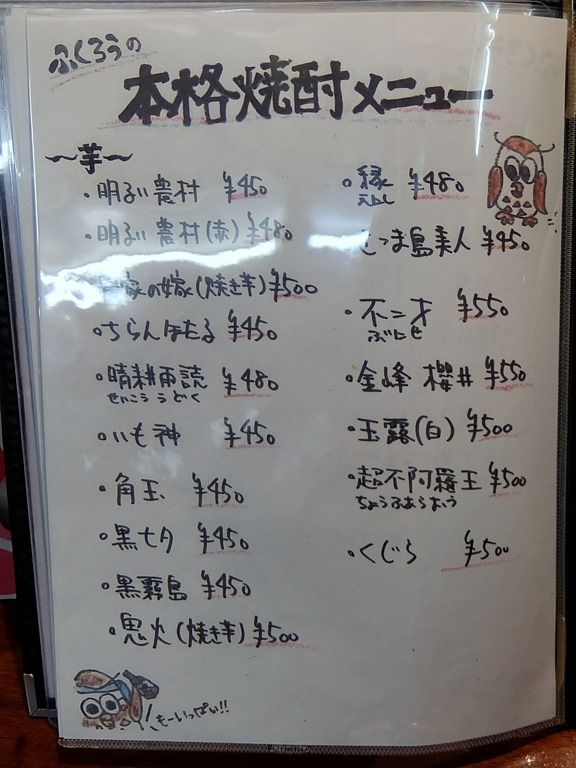 ふくろうの
本格焼酎メニュー
～芋～
・明るい農村 ¥450
・明るい農村(赤) ¥480
家の嫁(焼き芋) ¥500
・ちらんほたる ¥450
・晴耕雨読 ¥480
せいこううどく
・いも神 ¥450
・角玉 ¥450
・黒七夕 ¥450
・黒霧島 ¥450
・鬼火(焼き芋) ¥500
・縁 ¥480
えにし
・さつま島美人 ¥450
・不二才 ¥550
ぶにせ
・金峰 櫻井 ¥550
・玉露(白) ¥500
・超不阿羅王 ¥500
ちょうふあらおう
・くじら ¥500
もーいっぱい!!